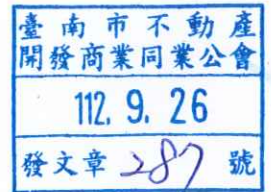 臺南市不動產
開發商業同業公會
112. 9. 26
發文章 287 號